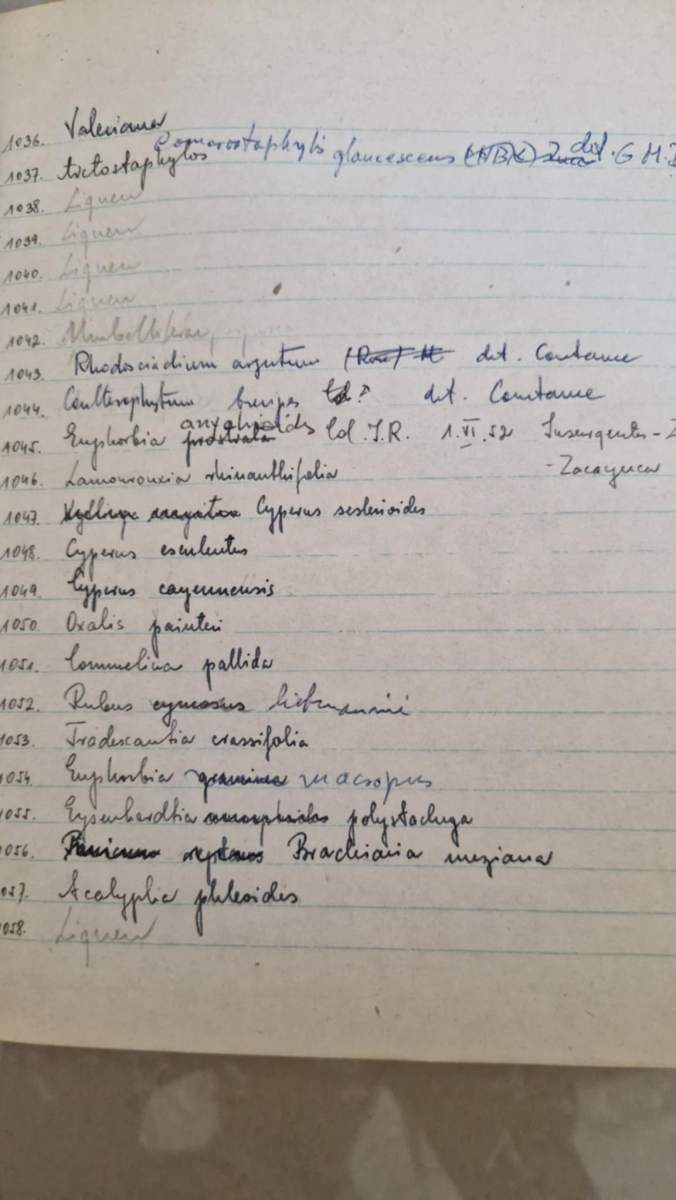 1036. Valeriana
Comarostaphylis glaucescens (HBK) det. G M.
1037. Arctostaphylos
1038. Liquen
1039. Liquen
1040. Liquen
1041. Liquen
1042. Umbelliferae
1043. Rhodosciadium argutum (Rose) det. Constance
1044. Coulterophytum brevipes det. Constance
1045. Euphorbia prostrata anychioides Col. J.R. 1.VI.52 Insurgentes-
-Zacayuca
1046. Lamourouxia rhinanthifolia
1047. Cyperus seslerioides
1048. Cyperus esculentus
1049. Cyperus cayennensis
1050. Oxalis painteri
1051. Commelina pallida
1052. Rubus cymosus liebmannii
1053. Tradescantia crassifolia
1054 Euphorbia graminea macropus
1055. Eysenhardtia amorphoides polystachya
1056. Panicum reptans Brachiaria meziana
057. Acalypha phleoides
058. Liquen